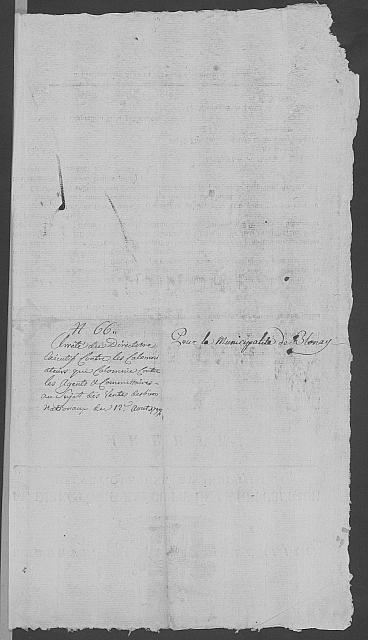 N 66.
Arrêté du Directoire
Exécutif Contre les Calomni
ateurs que Calomnie Contre
les Agents & Commissaires
au Sujet des Ventes des biens
Nationaux du 12e Aout
Pour la Municipalité de Blonay